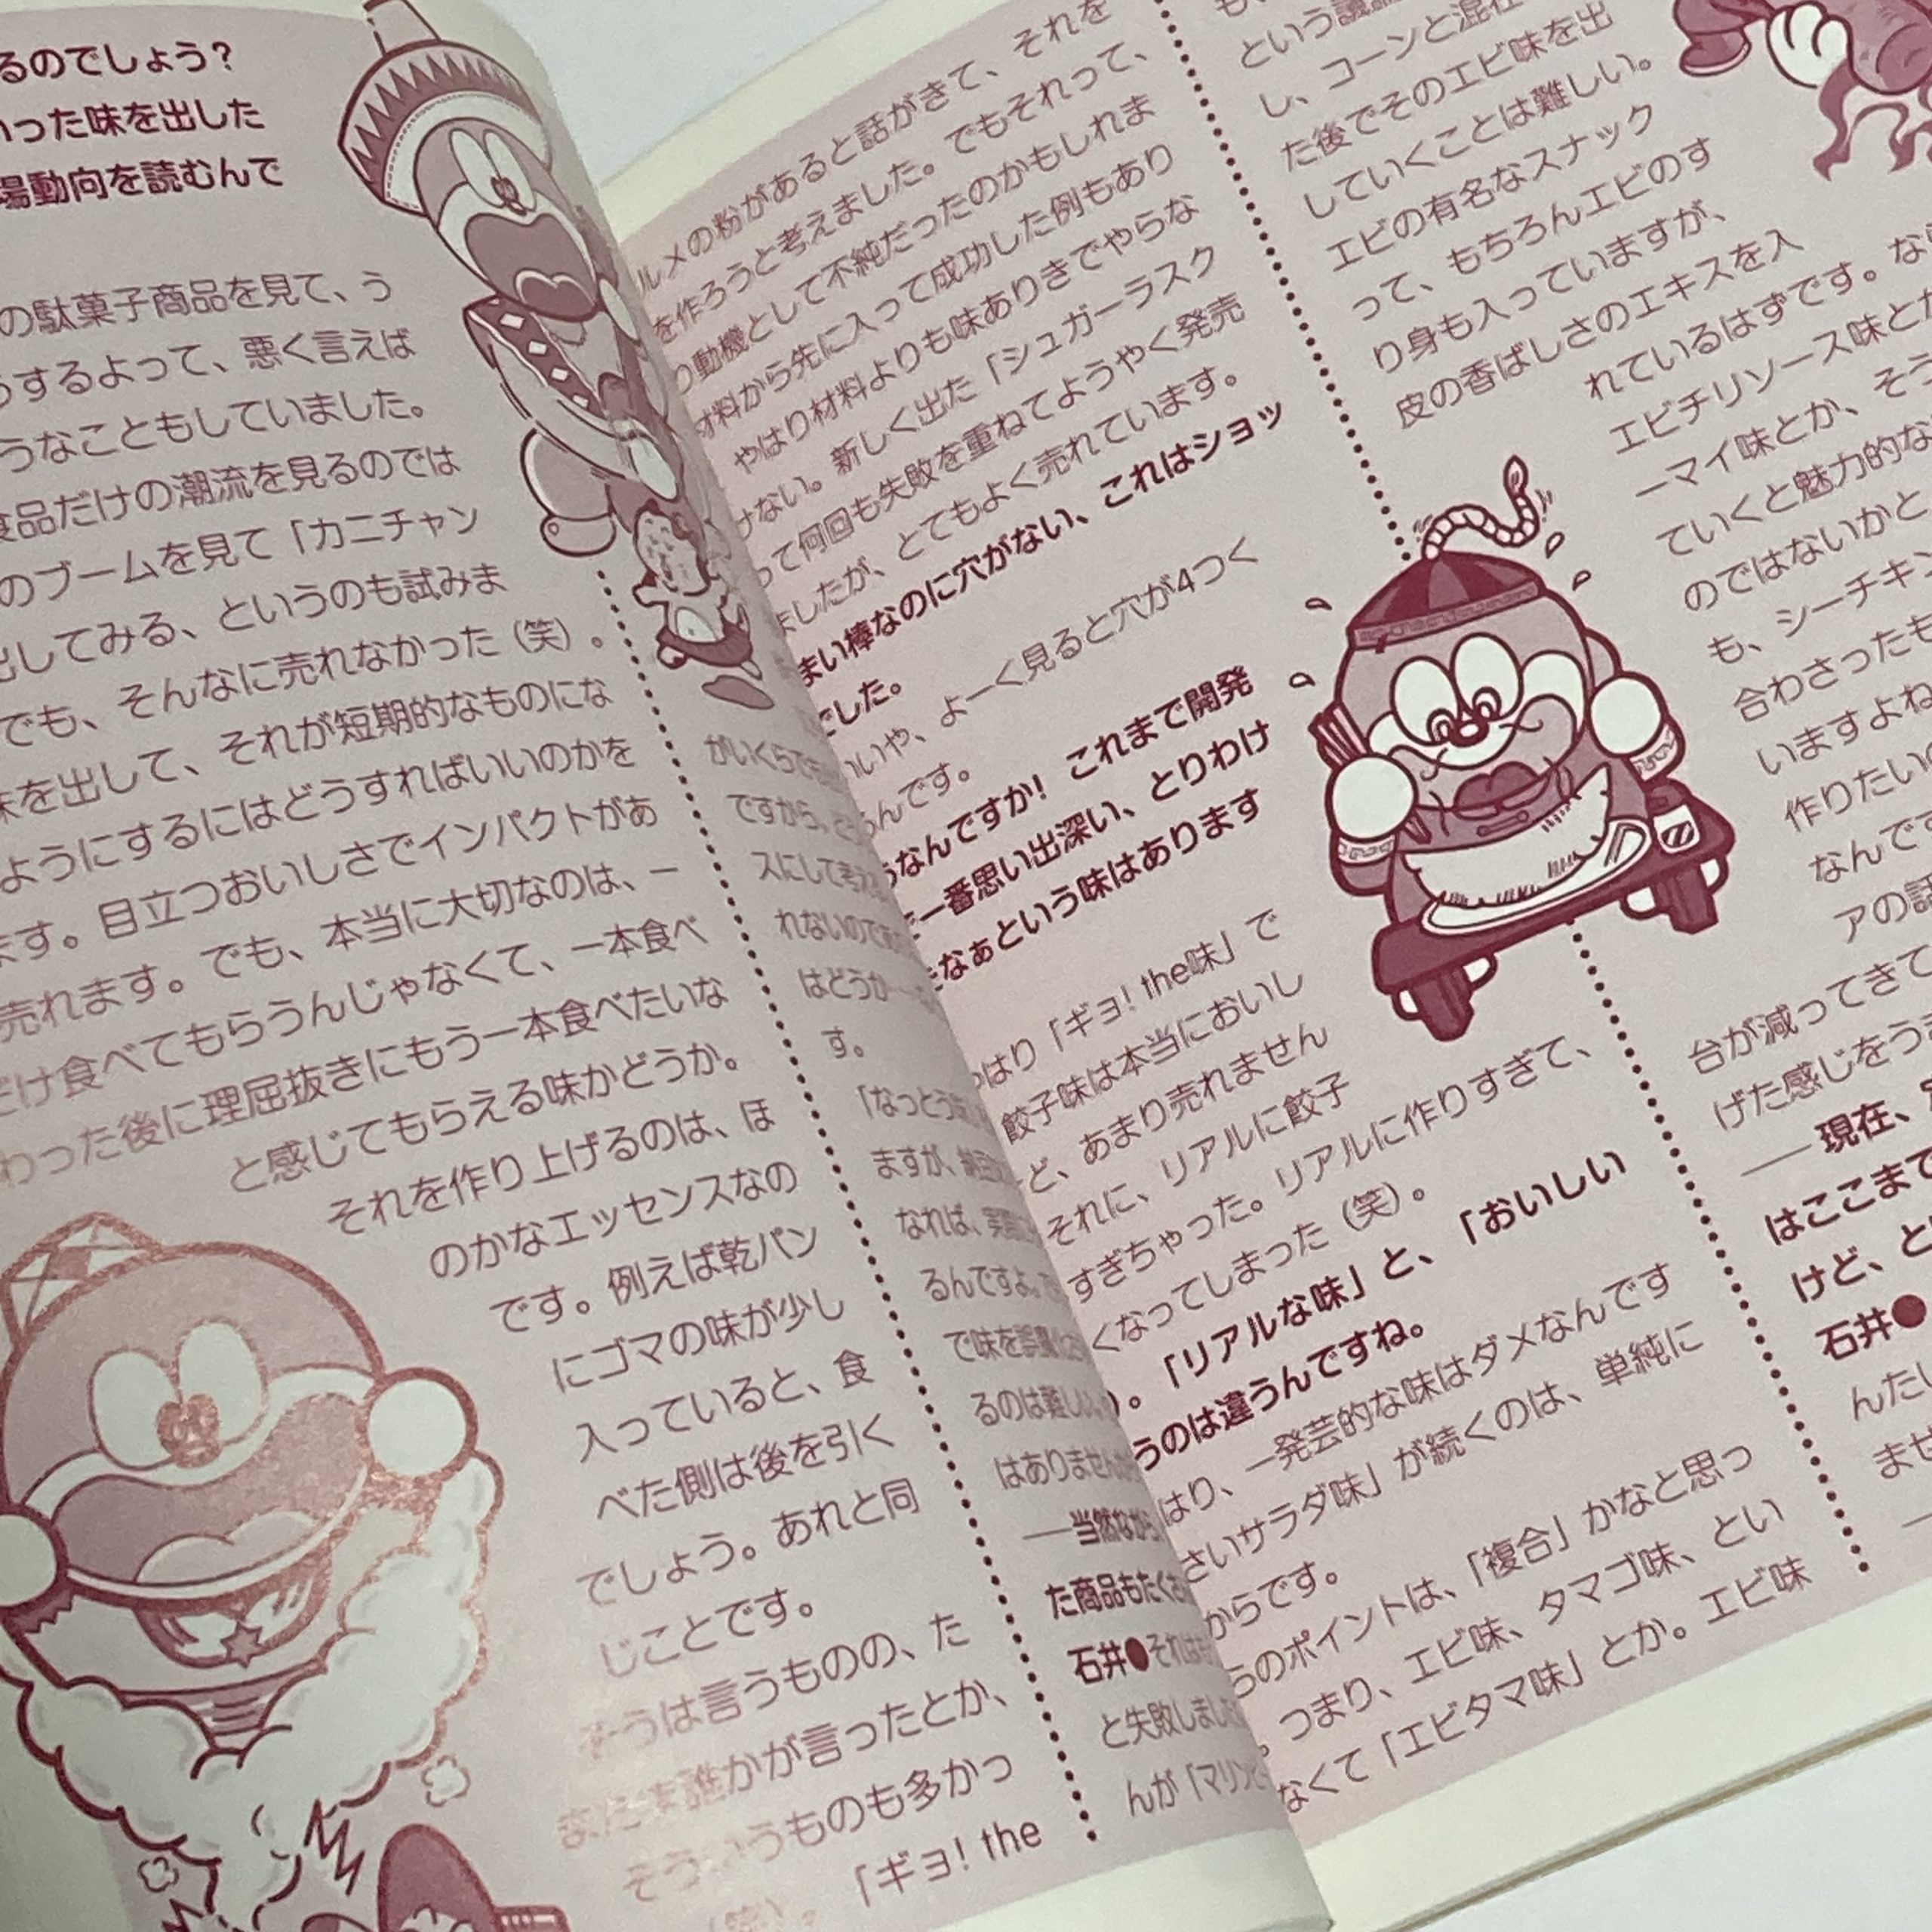 るのでしょう？
いった味を出した
場動向を読むんで
の駄菓子商品を見て、う
うするよって、悪く言えば
うなこともしていました。
食品だけの潮流を見るのでは
のブームを見て「カニチャン
出してみる、というのも試みま
でも、そんなに売れなかった（笑）。
味を出して、それが短期的なものにな
ようにするにはどうすればいいのかを
ます。目立つおいしさでインパクトがあ
売れます。でも、本当に大切なのは、一
だけ食べてもらうんじゃなくて、一本食べ
わった後に理屈抜きにもう一本食べたいな
と感じてもらえる味かどうか。
それを作り上げるのは、ほ
のかなエッセンスなの
です。例えば乾パン
にゴマの味が少し
入っていると、食
べた側は後を引く
でしょう。あれと同
じことです。
そうは言うものの、た
またま誰かが言ったとか、
そういうものも多かっ
（笑）。「ギョ！the
がいくらでも
ですから、
スにして考え
れないのです
はどうか
す。
「なっとう
ますが、
なれば、
るんですよ。
で味を
るのは難し
はありません
──当然ながら
た商品もたく
石井●それは
と失敗しまし
んが「マリン
ルメの粉があると話がきて、それを
を作ろうと考えました。でもそれって、
の動機として不純だったのかもしれま
材料から先に入って成功した例もあり
やはり材料よりも味ありきでやらな
けない。新しく出た「シュガーラスク
って何回も失敗を重ねてようやく発売
ましたが、とてもよく売れています。
まい棒なのに穴がない、これはショッ
でした。
いいや、よーく見ると穴が4つく
るんです。
うなんですか！ これまで開発
で一番思い出深い、とりわけ
なぁという味はあります
やはり「ギョ！the味」で
餃子味は本当においし
ど、あまり売れません
それに、リアルに餃子
すぎちゃった。リアルに作りすぎて、
くなってしまった（笑）。
）。「リアルな味」と、「おいしい
うのは違うんですね。
はり、一発芸的な味はダメなんです
さいサラダ味」が続くのは、単純に
からです。
らのポイントは、「複合」かなと思っ
。つまり、エビ味、タマゴ味、とい
なくて「エビタマ味」とか。エビ味
という議論
し、コーンと混在
た後でそのエビ味を出
していくことは難しい。
エビの有名なスナック
って、もちろんエビのす
り身も入っていますが、
皮の香ばしさのエキスを入
れているはずです。なら
エビチリソース味とか
ーマイ味とか、そう
ていくと魅力的な
のではないかと
も、シーチキン
合わさったも
いますよね
作りたい
なんで
アの話
台が減ってきて
げた感じをう
──現在、
はここまで
けど、と
石井●
んたい
ませ